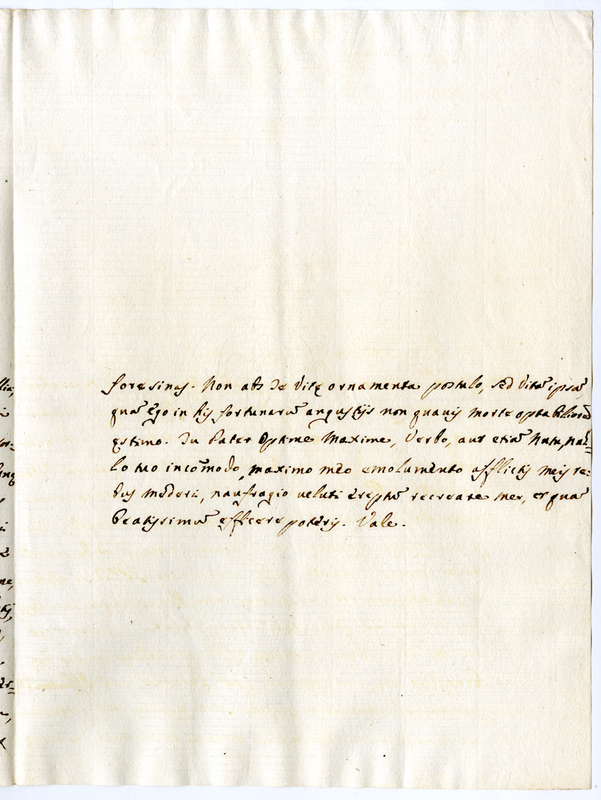 fore sinas. Non abs Te Vitę ornamenta postulo, sed Vitã ipsã,
quã ego in his fortunarũ angustijs non quauis morte optabiliorẽ
ęstimo. Tu Pater Optime Maxime, Verbo, aut etiã Nutu, nul-
lo tuo incõmodo, maximo meo emolumẽto afflictis meis re-
bus mederi, naufragio veluti ereptũ recreare me, et quã
Beatissimũ efficere poteris. Vale.